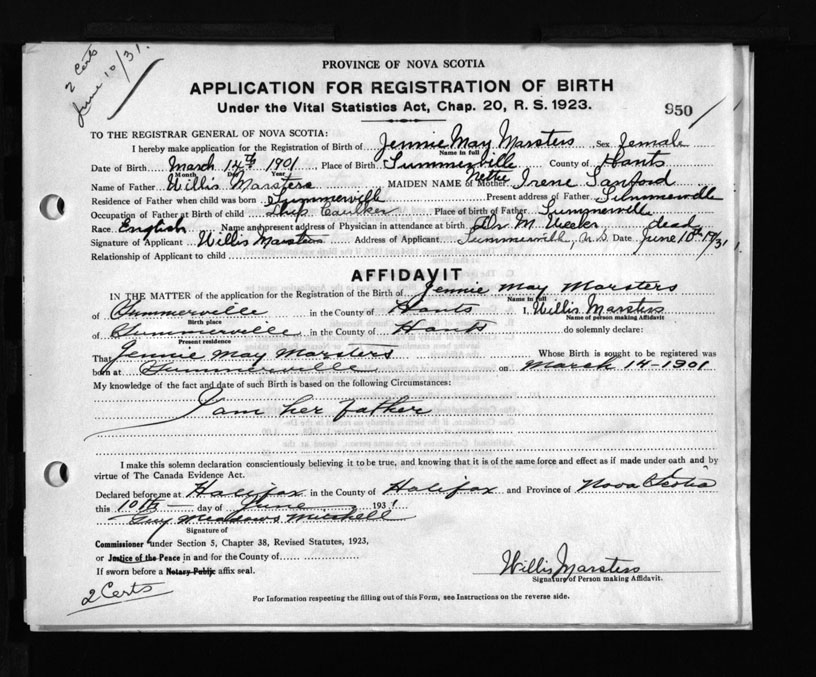 2 Certs
June 10/31.
PROVINCE OF NOVA SCOTIA
APPLICATION FOR REGISTRATION OF BIRTH
Under the Vital Statistics Act, Chap. 20, R. S. 1923.
950
TO THE REGISTRAR GENERAL OF NOVA SCOTIA:
I hereby make application for the Registration of Birth of Jennie May Marsters Sex female
Name in full
Date of Birth March 14th 1901, Place of Birth Summerville County of Hants
Month Day Year
Name of Father Willis Marsters MAIDEN NAME of Mother Nettie Irene Sanford
Residence of Father when child was born Summerville Present address of Father Summerville
Occupation of Father at Birth of child Ship Caulker Place of birth of Father Summerville
Race English Name and present address of Physician in attendance at birth Dr. M. dead
Signature of Applicant Willis Marsters Address of Applicant Summerville N.S. Date June 10th 1931
Relationship of Applicant to child
AFFIDAVIT
IN THE MATTER of the application for the Registration of the Birth of Jennie May Marsters
Name in full
of Summerville in the County of Hants I, Willis Marsters
Birth place Name of person making Affidavit
of Summerville in the County of Hants do solemnly declare:
Present residence
That Jennie May Marsters Whose Birth is sought to be registered was
born at Summerville on March 14-1901
My knowledge of the fact and date of such Birth is based on the following Circumstances:
I am her father
I make this solemn declaration conscientiously believing it to be true, and knowing that it is of the same force and effect as if made under oath and by
virtue of The Canada Evidence Act.
Declared before me at Halifax in the County of Halifax and Province of Nova Scotia
this 10th day of June 1931
Guy Mitchell
Signature of
Commissioner under Section 5, Chapter 38, Revised Statutes, 1923,
or Justice of the Peace in and for the County of
If sworn before a Notary Public affix seal.
Willis Marsters
Signature of Person making Affidavit.
2 Certs
For Information respecting the filling out of this Form, see Instructions on the reverse side.